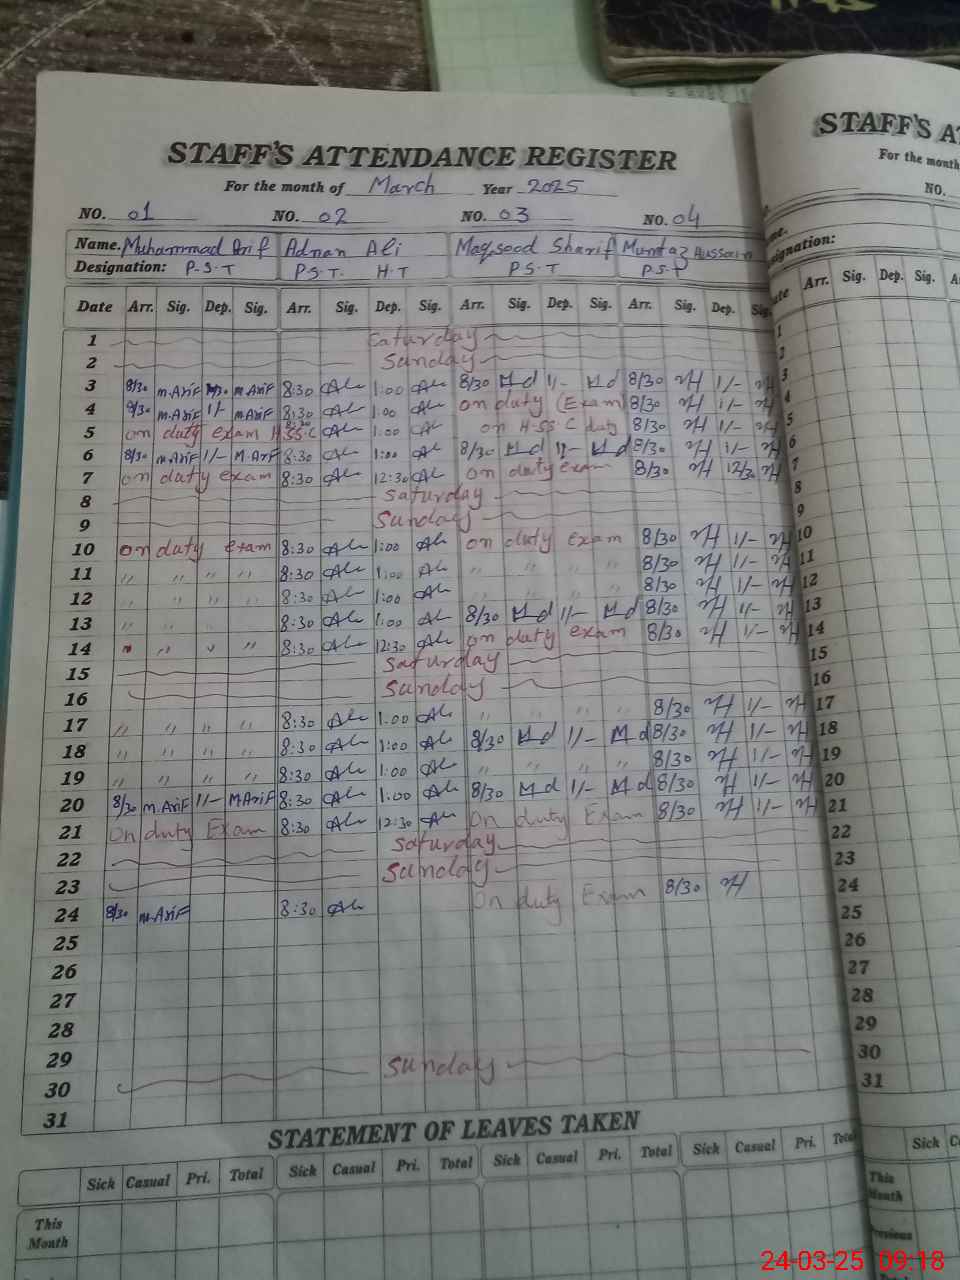 STAFF'S ATTENDANCE REGISTER
For the month of March Year 2025
NO. 01 NO. 02 NO. 03 NO. 04
Name. Muhammad Arif Adnan Ali Maqsood Sharif Mumtaz Hussain
Designation: P.S.T P.S.T. H.T P.S.T P.S.T
Date Arr. Sig. Dep. Sig. Arr. Sig. Dep. Sig. Arr. Sig. Dep. Sig. Arr. Sig. Dep. Sig.
1 Saturday
2 Sunday
3 8/30 M.Arif M.Arif 8:30 Ali 1:00 Ali 8/30 Md 1/- Md 8/30 MH 1/- MH
4 8/30 M.Arif 1/- M.Arif 8:30 Ali 1:00 Ali on duty (Exam) 8/30 MH 1/- MH
5 on duty exam H.SS.C 8:30 Ali 1:00 Ali on H-SS-C duty 8/30 MH 1/- MH
6 8/30 M.Arif 1/- M.Arif 8:30 Ali 1:00 Ali 8/30 Md 1/- Md 8/30 MH 1/- MH
7 on duty exam 8:30 Ali 12:30 Ali on duty exam 8/30 MH 12/30 MH
8 Saturday
9 Sunday
10 on duty exam 8:30 Ali 1:00 Ali on duty exam 8/30 MH 1/- MH
11 " " " " 8:30 Ali 1:00 Ali " " " " 8/30 MH 1/- MH
12 " " " " 8:30 Ali 1:00 Ali " " " " 8/30 MH 1/- MH
13 " " " " 8:30 Ali 1:00 Ali 8/30 Md 1/- Md 8/30 MH 1/- MH
14 " " " " 8:30 Ali 12:30 Ali on duty exam 8/30 MH 1/- MH
15 Saturday
16 Sunday
17 " " " " 8:30 Ali 1:00 Ali " " " " 8/30 MH 1/- MH
18 " " " " 8:30 Ali 1:00 Ali 8/30 Md 1/- Md 8/30 MH 1/- MH
19 " " " " 8:30 Ali 1:00 Ali " " " " 8/30 MH 1/- MH
20 8/30 M.Arif 1/- M.Arif 8:30 Ali 1:00 Ali 8/30 Md 1/- Md 8/30 MH 1/- MH
21 On duty Exam 8:30 Ali 12:30 Ali On duty Exam 8/30 MH 1/- MH
22 Saturday
23 Sunday
24 8/30 M.Arif 8:30 Ali On duty Exam 8/30 MH
25
26
27
28
29
30 Sunday
31
STATEMENT OF LEAVES TAKEN
Sick Casual Pri. Total Sick Casual Pri. Total Sick Casual Pri. Total Sick Casual Pri. Total
This
Month
STAFF'S
For the month
NO.
Designation:
Arr. Sig. Dep. Sig.
1
2
3
4
5
6
7
8
9
10
11
12
13
14
15
16
17
18
19
20
21
22
23
24
25
26
27
28
29
30
31
Sick
This
Month
24-03-25 09:18